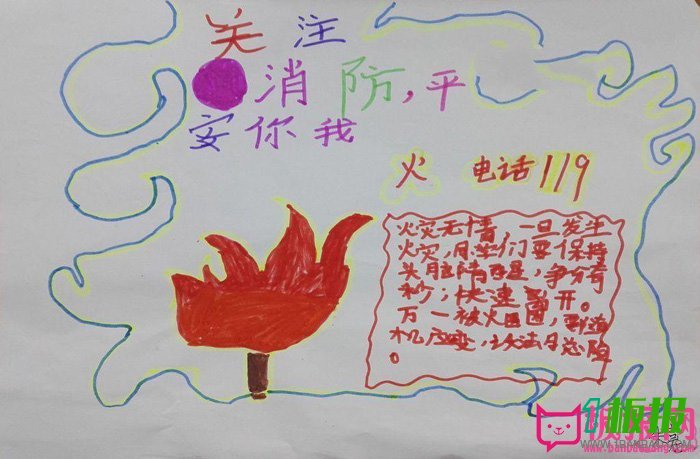 关注
消防，平
安你我
火 电话119
火灾无情，一旦发生
火灾，同学们要保持
头脑清醒，争分夺
秒；快速离开。
万一被火围困，要随
机应变，设法脱险
。
板报网
www.banbaowang.com